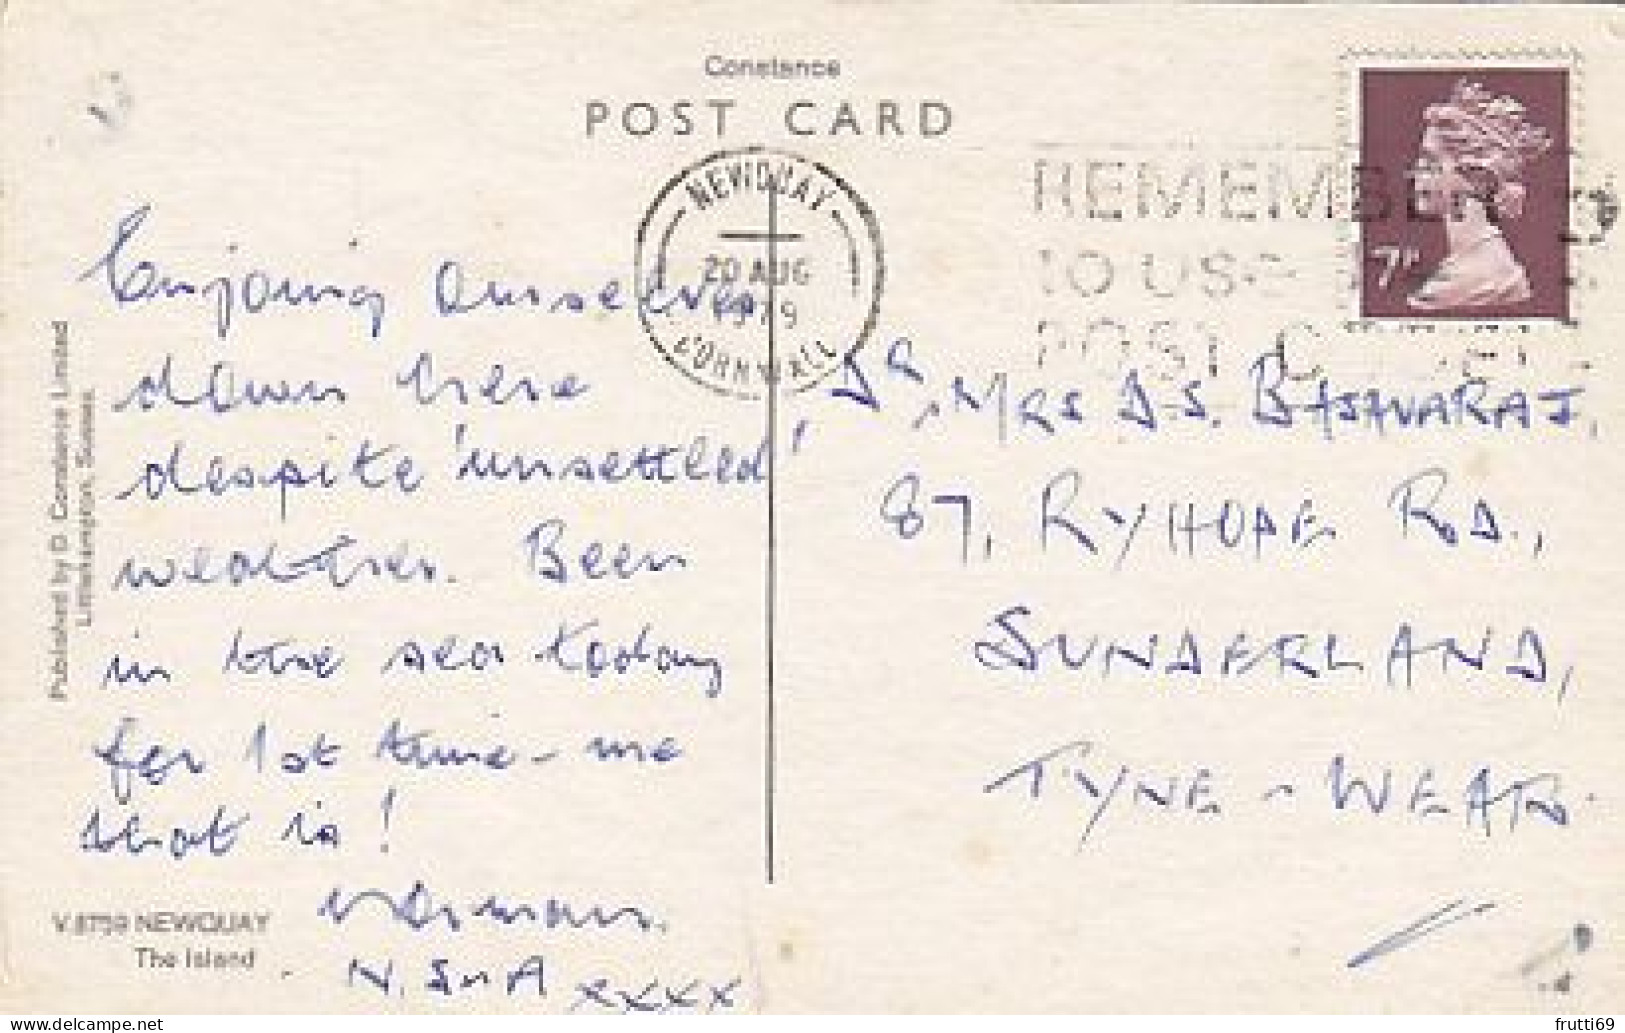 Constance
POST CARD
NEWQUAY
20 AUG
1979
CORNWALL
REMEMBER
TO USE
POST
7P
Enjoying ourselves
down here
despite 'unsettled'
weather. Been
in the sea today
for 1st time - me
that is!
Norman.
XXXX
Dr, MRS D.S. BASAVARAJ,
87, RYHOPE RD.,
SUNDERLAND,
TYNE - WEAR.
Published by D. Constance Limited
Littlehampton, Sussex.
V.8759 NEWQUAY
The Island
frutti69